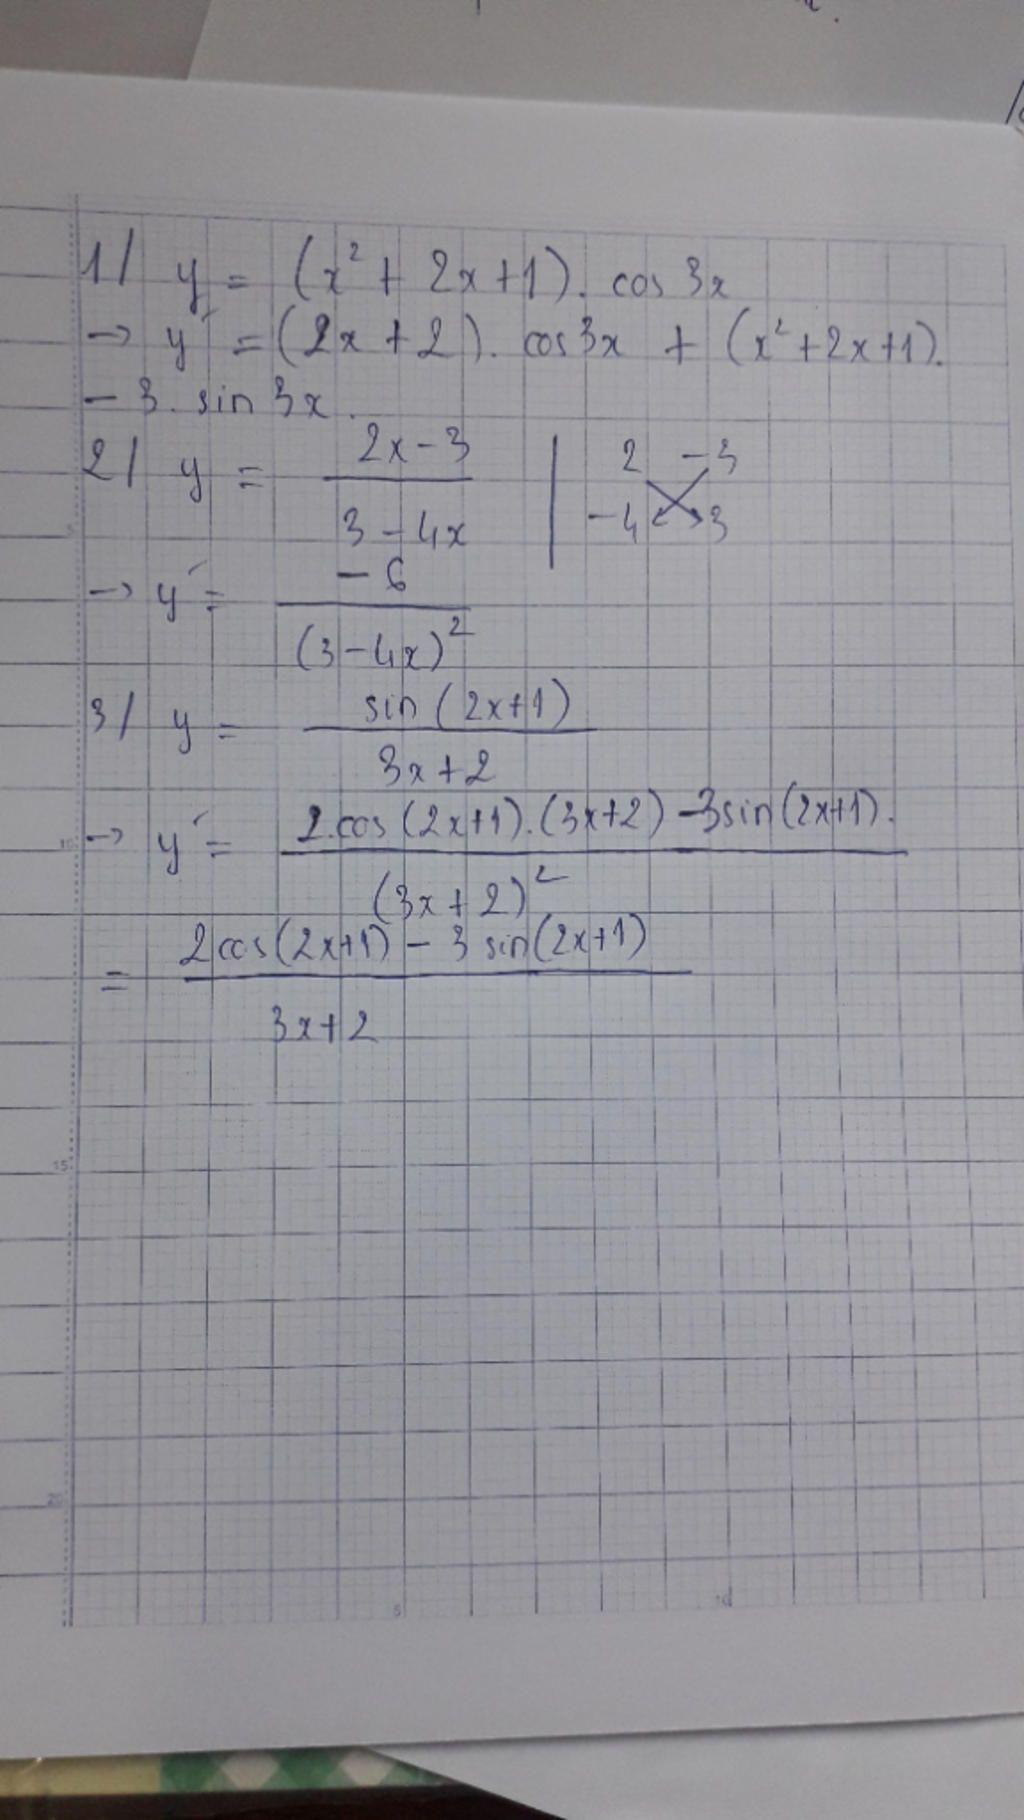 1/ y = (x² + 2x + 1). cos 3x
→ y' = (2x + 2). cos 3x + (x² + 2x + 1).
- 3. sin 3x.
2/ y = (2x - 3)/(3 - 4x) | 2 -3
-4 3
→ y' = -6/(3 - 4x)²
3/ y = sin(2x+1)/(3x+2)
→ y' = (2.cos(2x+1).(3x+2) - 3sin(2x+1).)/(3x+2)²
= (2cos(2x+1) - 3 sin(2x+1))/(3x+2)
5
10
15
20
5
10